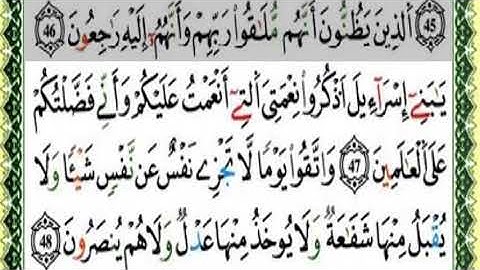 45 ٱلَّذِينَ يَظُنُّونَ أَنَّهُم مُّلَٰقُوا۟ رَبِّهِمْ وَأَنَّهُمْ إِلَيْهِ رَٰجِعُونَ 46
يَٰبَنِىٓ إِسْرَآءِيلَ ٱذْكُرُوا۟ نِعْمَتِىَ ٱلَّتِىٓ أَنْعَمْتُ عَلَيْكُمْ وَأَنِّى فَضَّلْتُكُمْ
عَلَى ٱلْعَٰلَمِينَ 47 وَٱتَّقُوا۟ يَوْمًا لَّا تَجْزِى نَفْسٌ عَن نَّفْسٍ شَيْـًٔا وَلَا
يُقْبَلُ مِنْهَا شَفَٰعَةٌ وَلَا يُؤْخَذُ مِنْهَا عَدْلٌ وَلَا هُمْ يُنصَرُونَ 48